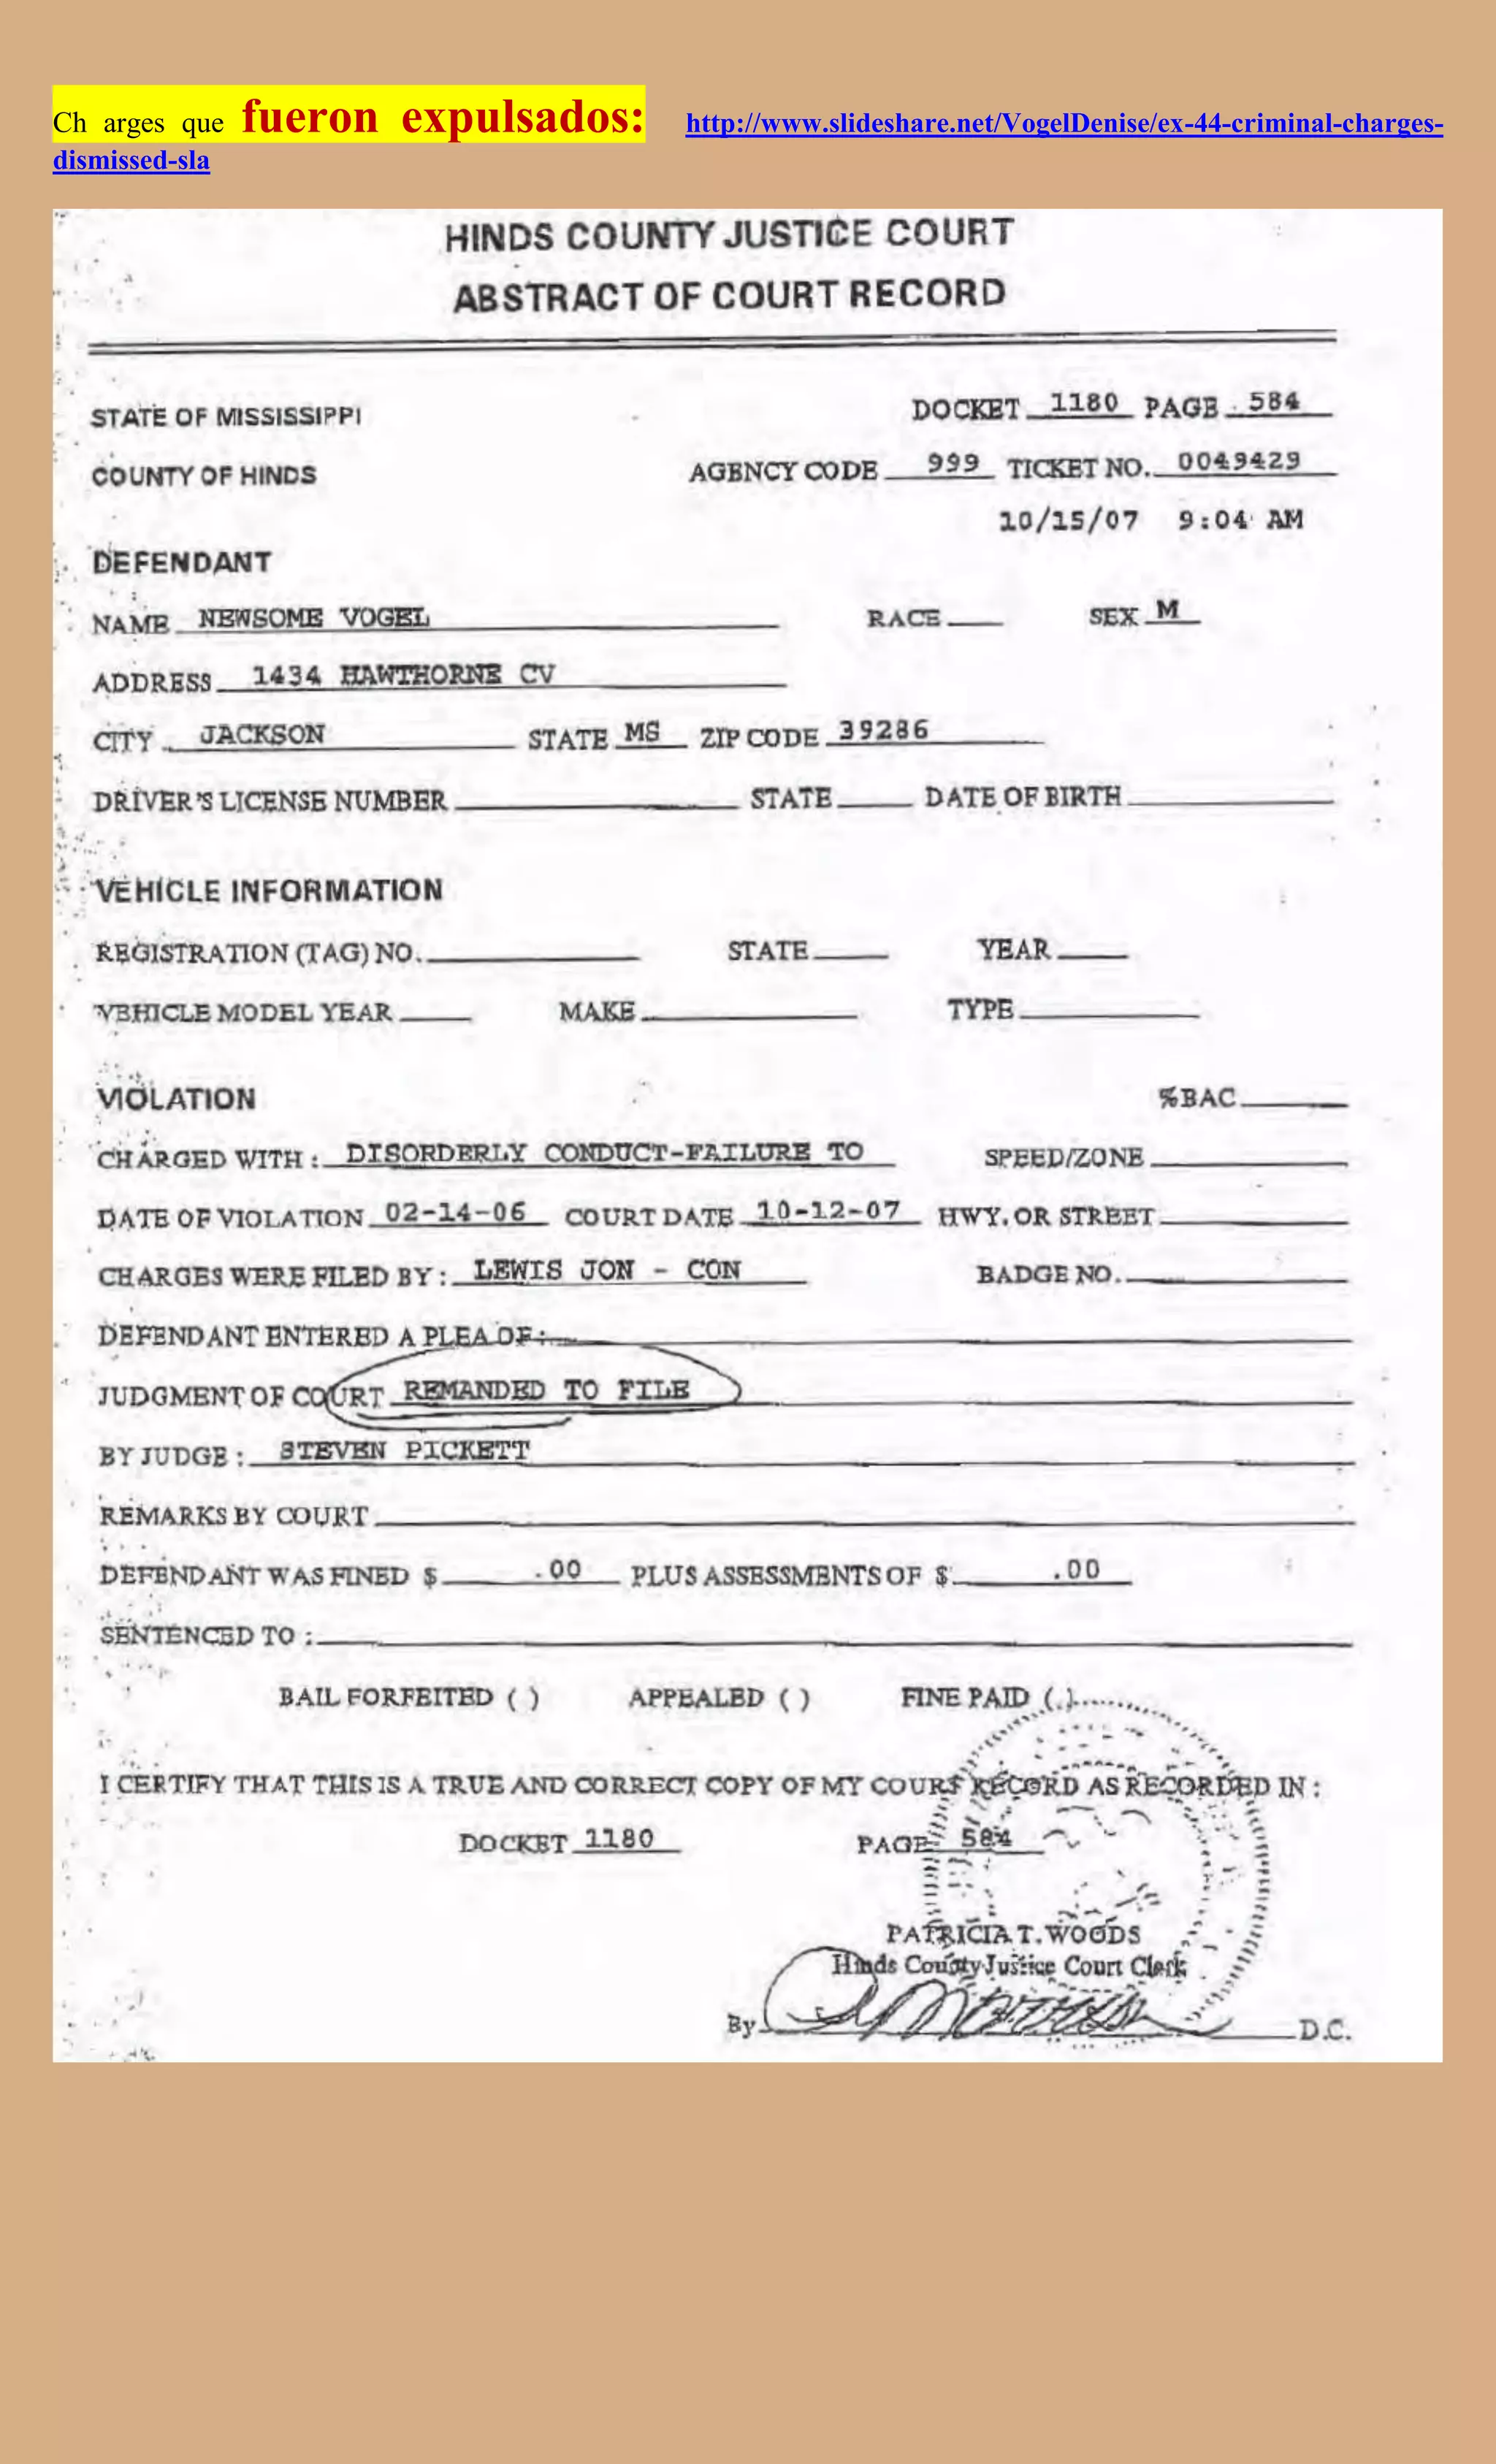 Ch arges que fueron expulsados: http://www.slideshare.net/VogelDenise/ex-44-criminal-charges-
dismissed-sla
HINDS COUNTY JUSTICE COURT
ABSTRACT OF COURT RECORD
STATE OF MISSISSIPPI DOCKET 1180 PAGE 584
COUNTY OF HINDS AGENCY CODE 999 TICKET NO. 0049429
10/15/07 9:04 AM
DEFENDANT
NAME NEWSOME VOGEL RACE SEX M
ADDRESS 1434 HAWTHORNE CV
CITY JACKSON STATE MS ZIP CODE 39286
DRIVER'S LICENSE NUMBER STATE DATE OF BIRTH
VEHICLE INFORMATION
REGISTRATION (TAG) NO. STATE YEAR
VEHICLE MODEL YEAR MAKE TYPE
VIOLATION %BAC
CHARGED WITH : DISORDERLY CONDUCT-FAILURE TO SPEED/ZONE
DATE OF VIOLATION 02-14-06 COURT DATE 10-12-07 HWY. OR STREET
CHARGES WERE FILED BY : LEWIS JON - CON BADGE NO.
DEFENDANT ENTERED A PLEA OF :
JUDGMENT OF COURT REMANDED TO FILE
BY JUDGE : STEVEN PICKETT
REMARKS BY COURT
DEFENDANT WAS FINED $ .00 PLUS ASSESSMENTS OF $ .00
SENTENCED TO :
BAIL FORFEITED ( ) APPEALED ( ) FINE PAID ( )
I CERTIFY THAT THIS IS A TRUE AND CORRECT COPY OF MY COURT RECORD AS RECORDED IN :
DOCKET 1180 PAGE 584
PATRICIA T. WOODS
Hinds County Justice Court Clerk
By D.C.